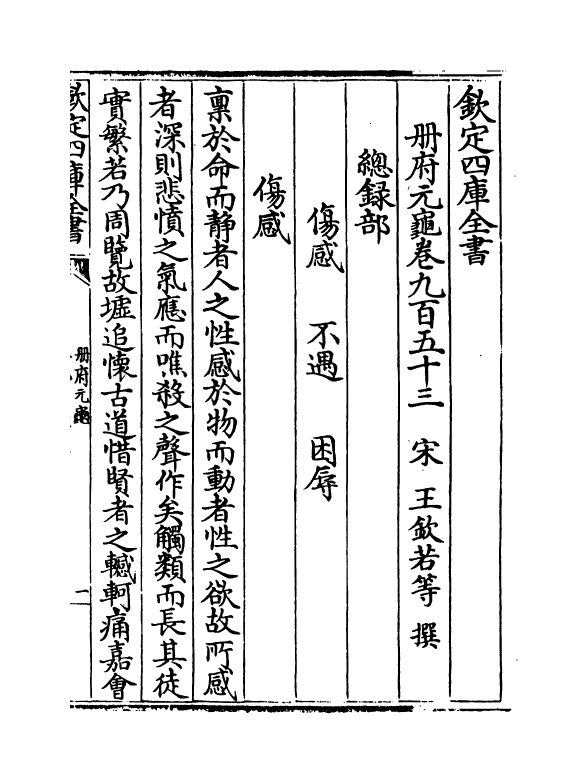 欽定四庫全書
册府元龜卷九百五十三　宋　王欽若等　撰
總録部
傷感　不遇　困辱
傷感
禀於命而静者人之性感於物而動者性之欲故所感
者深則悲憤之氣應而噍殺之聲作矣觸類而長其徒
實繁若乃周覽故墟追懷古道惜賢者之轗軻痛嘉會
欽定四庫全書
册府元龜